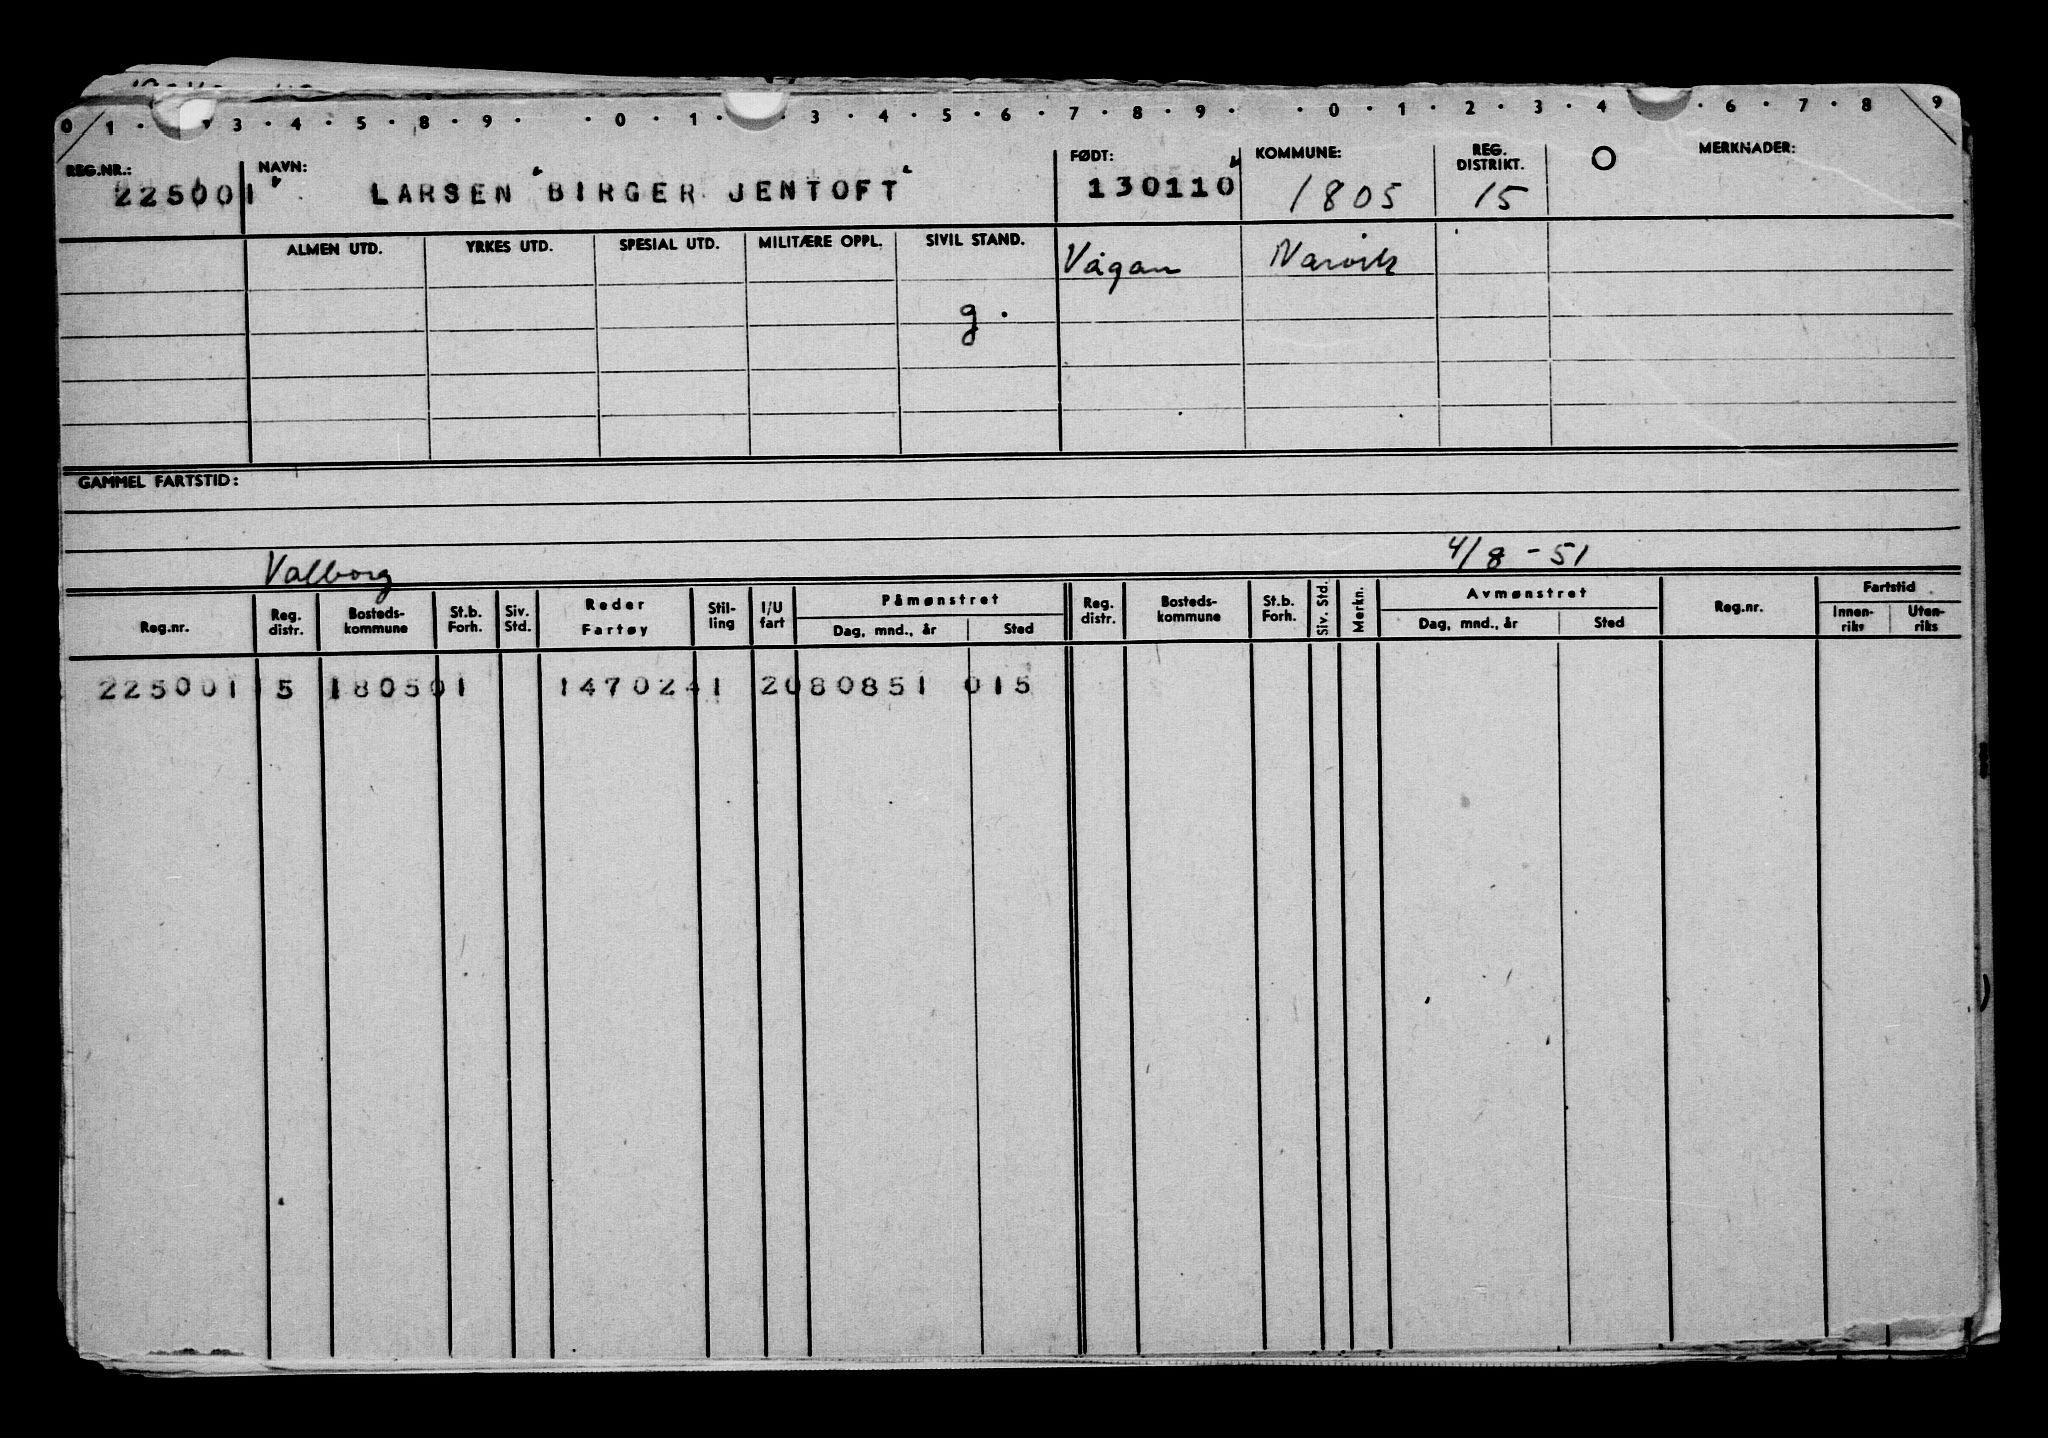 0 1 · 3 · 4 · 5 · 8 · 9 · · 0 · 1 · 3 · 4 · 5 · 6 · 7 · 8 · 9 · · 0 · 1 · 2 · 3 · 4 · 6 · 7 · 8 9
REG.NR.: NAVN: FØDT: KOMMUNE: REG. DISTRIKT. MERKNADER:
225001 LARSEN BIRGER JENTOFT 130110 1805 15
ALMEN UTD. YRKES UTD. SPESIAL UTD. MILITÆRE OPPL. SIVIL STAND. Vågan Narvik
g.
GAMMEL FARTSTID:
Valborg 4/8 - 51
Reg.nr. Reg. distr. Bosteds-kommune St.b. Forh. Siv. Std. Reder Fartøy Stil-ling I/U fart Påmønstret Dag, mnd., år Sted Reg. distr. Bosteds-kommune St.b. Forh. Siv. Std. Merkn. Avmønstret Dag, mnd., år Sted Reg.nr. Fartstid Innen-riks Uten-riks
225001 15 180501 1470241 2080851 015